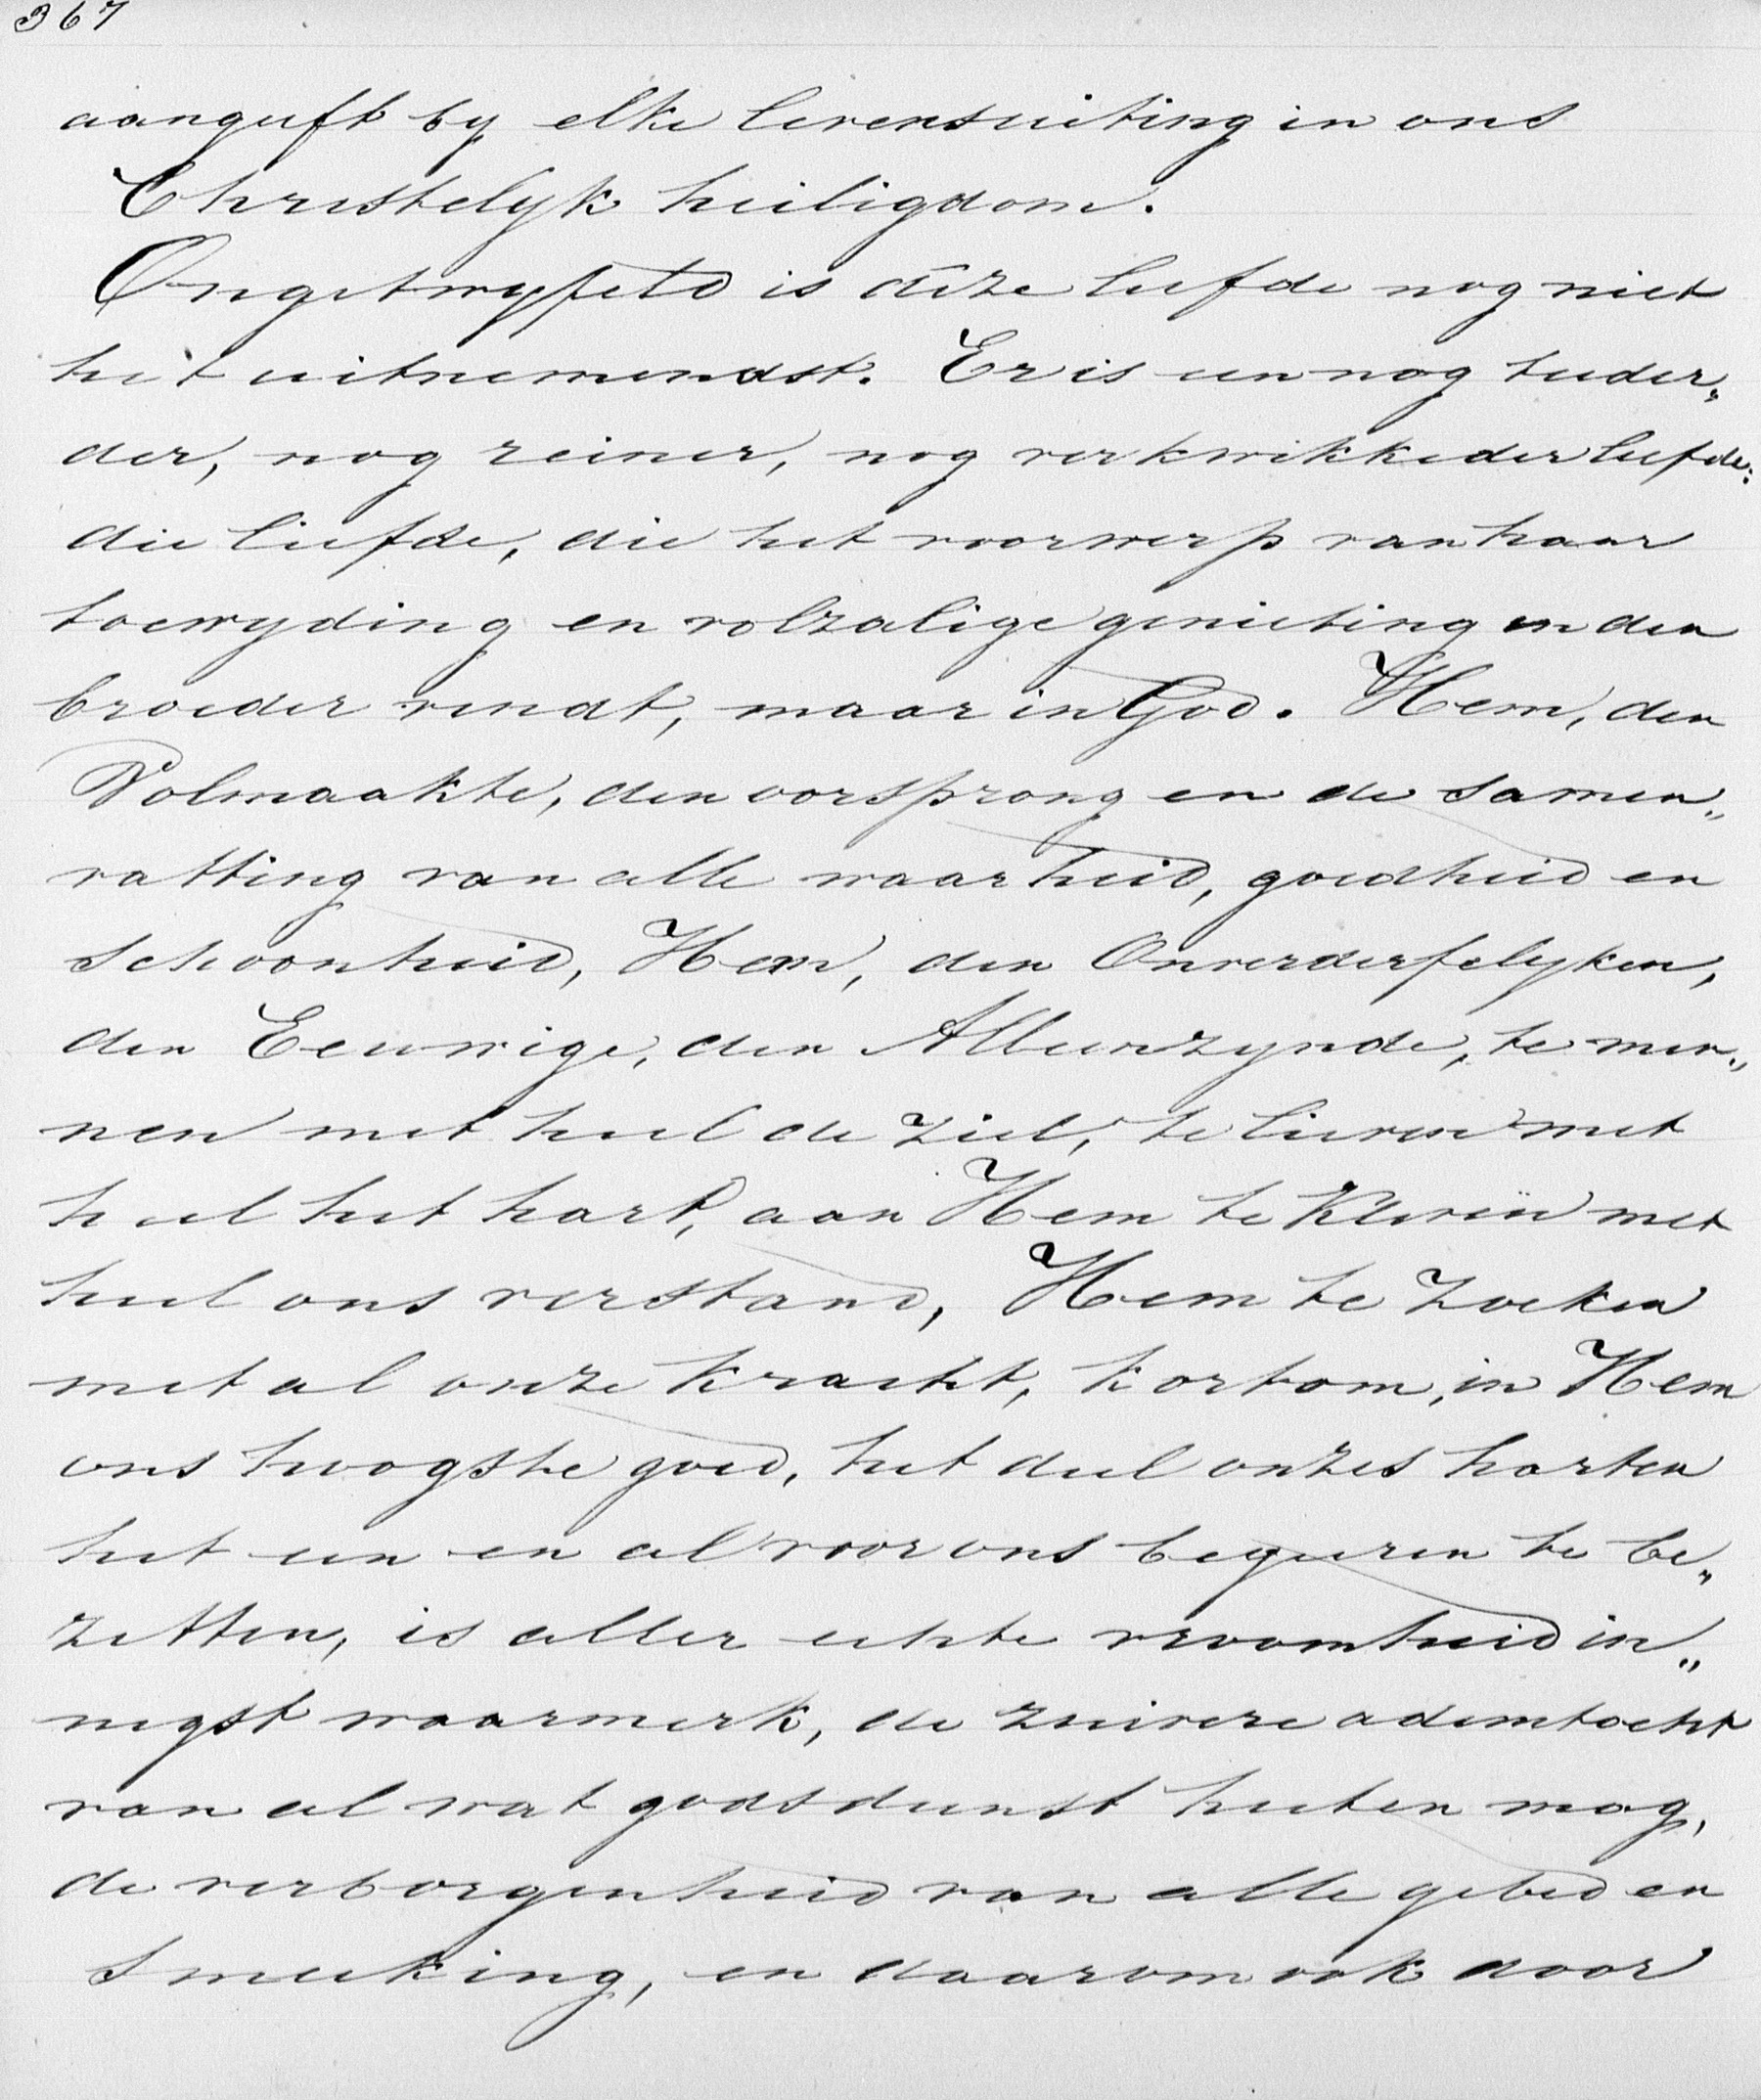 367
aangrift by elke levensuiting in ons
Christelyk heiligdom.
Ongetwyfeld is deze liefde nog niet
het uitnemendst. Er is een nog teeder„
der, nog reiner, nog verkwikkeder liefde:
die liefde, die het voorwerp van haar
toewyding en volzalige genieting in den
broeder vindt, maar in God. Hem, den
Volmaakte, den oorsprong en de samen„
vatting van alle waarheid, goedheid en
schoonheid, Hem, den Onverderfelyken,
den Eeuwige, den Alleenzynde, te min„
nen met heel de ziel, te lieven met
heel het hart, aan Hem te kleven met
heel ons verstand, Hem te zoeken
met al onze kracht, kortom, in Hem
ons hoogste goed, het deel onzes harten
het een en al voor ons begeeren te be„
zitten, is aller echte vroomheid in„
nigst waarmerk, de zuivere ademtocht
van al wat godsdienst heeten mag,
de verborgenheid van alle gebed en
smeeking, en daarom ook door